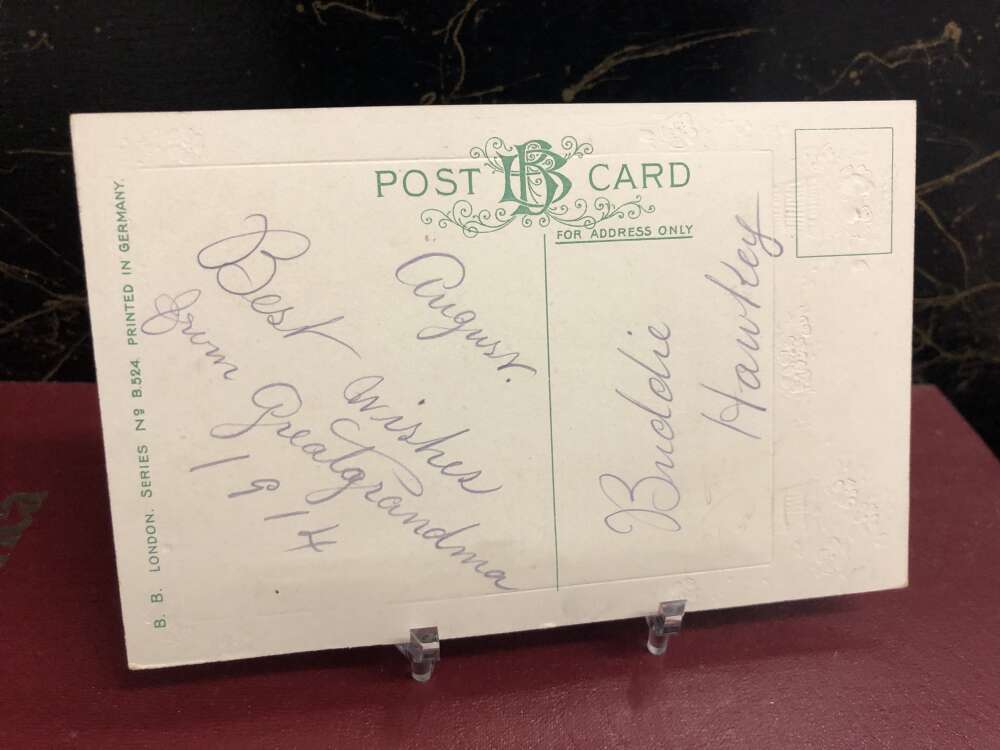 POST BB CARD
FOR ADDRESS ONLY
August.
Best Wishes
from Greatgrandma
1914
Buddie
Hawkey
B. B. LONDON. SERIES Nº B.524. PRINTED IN GERMANY.